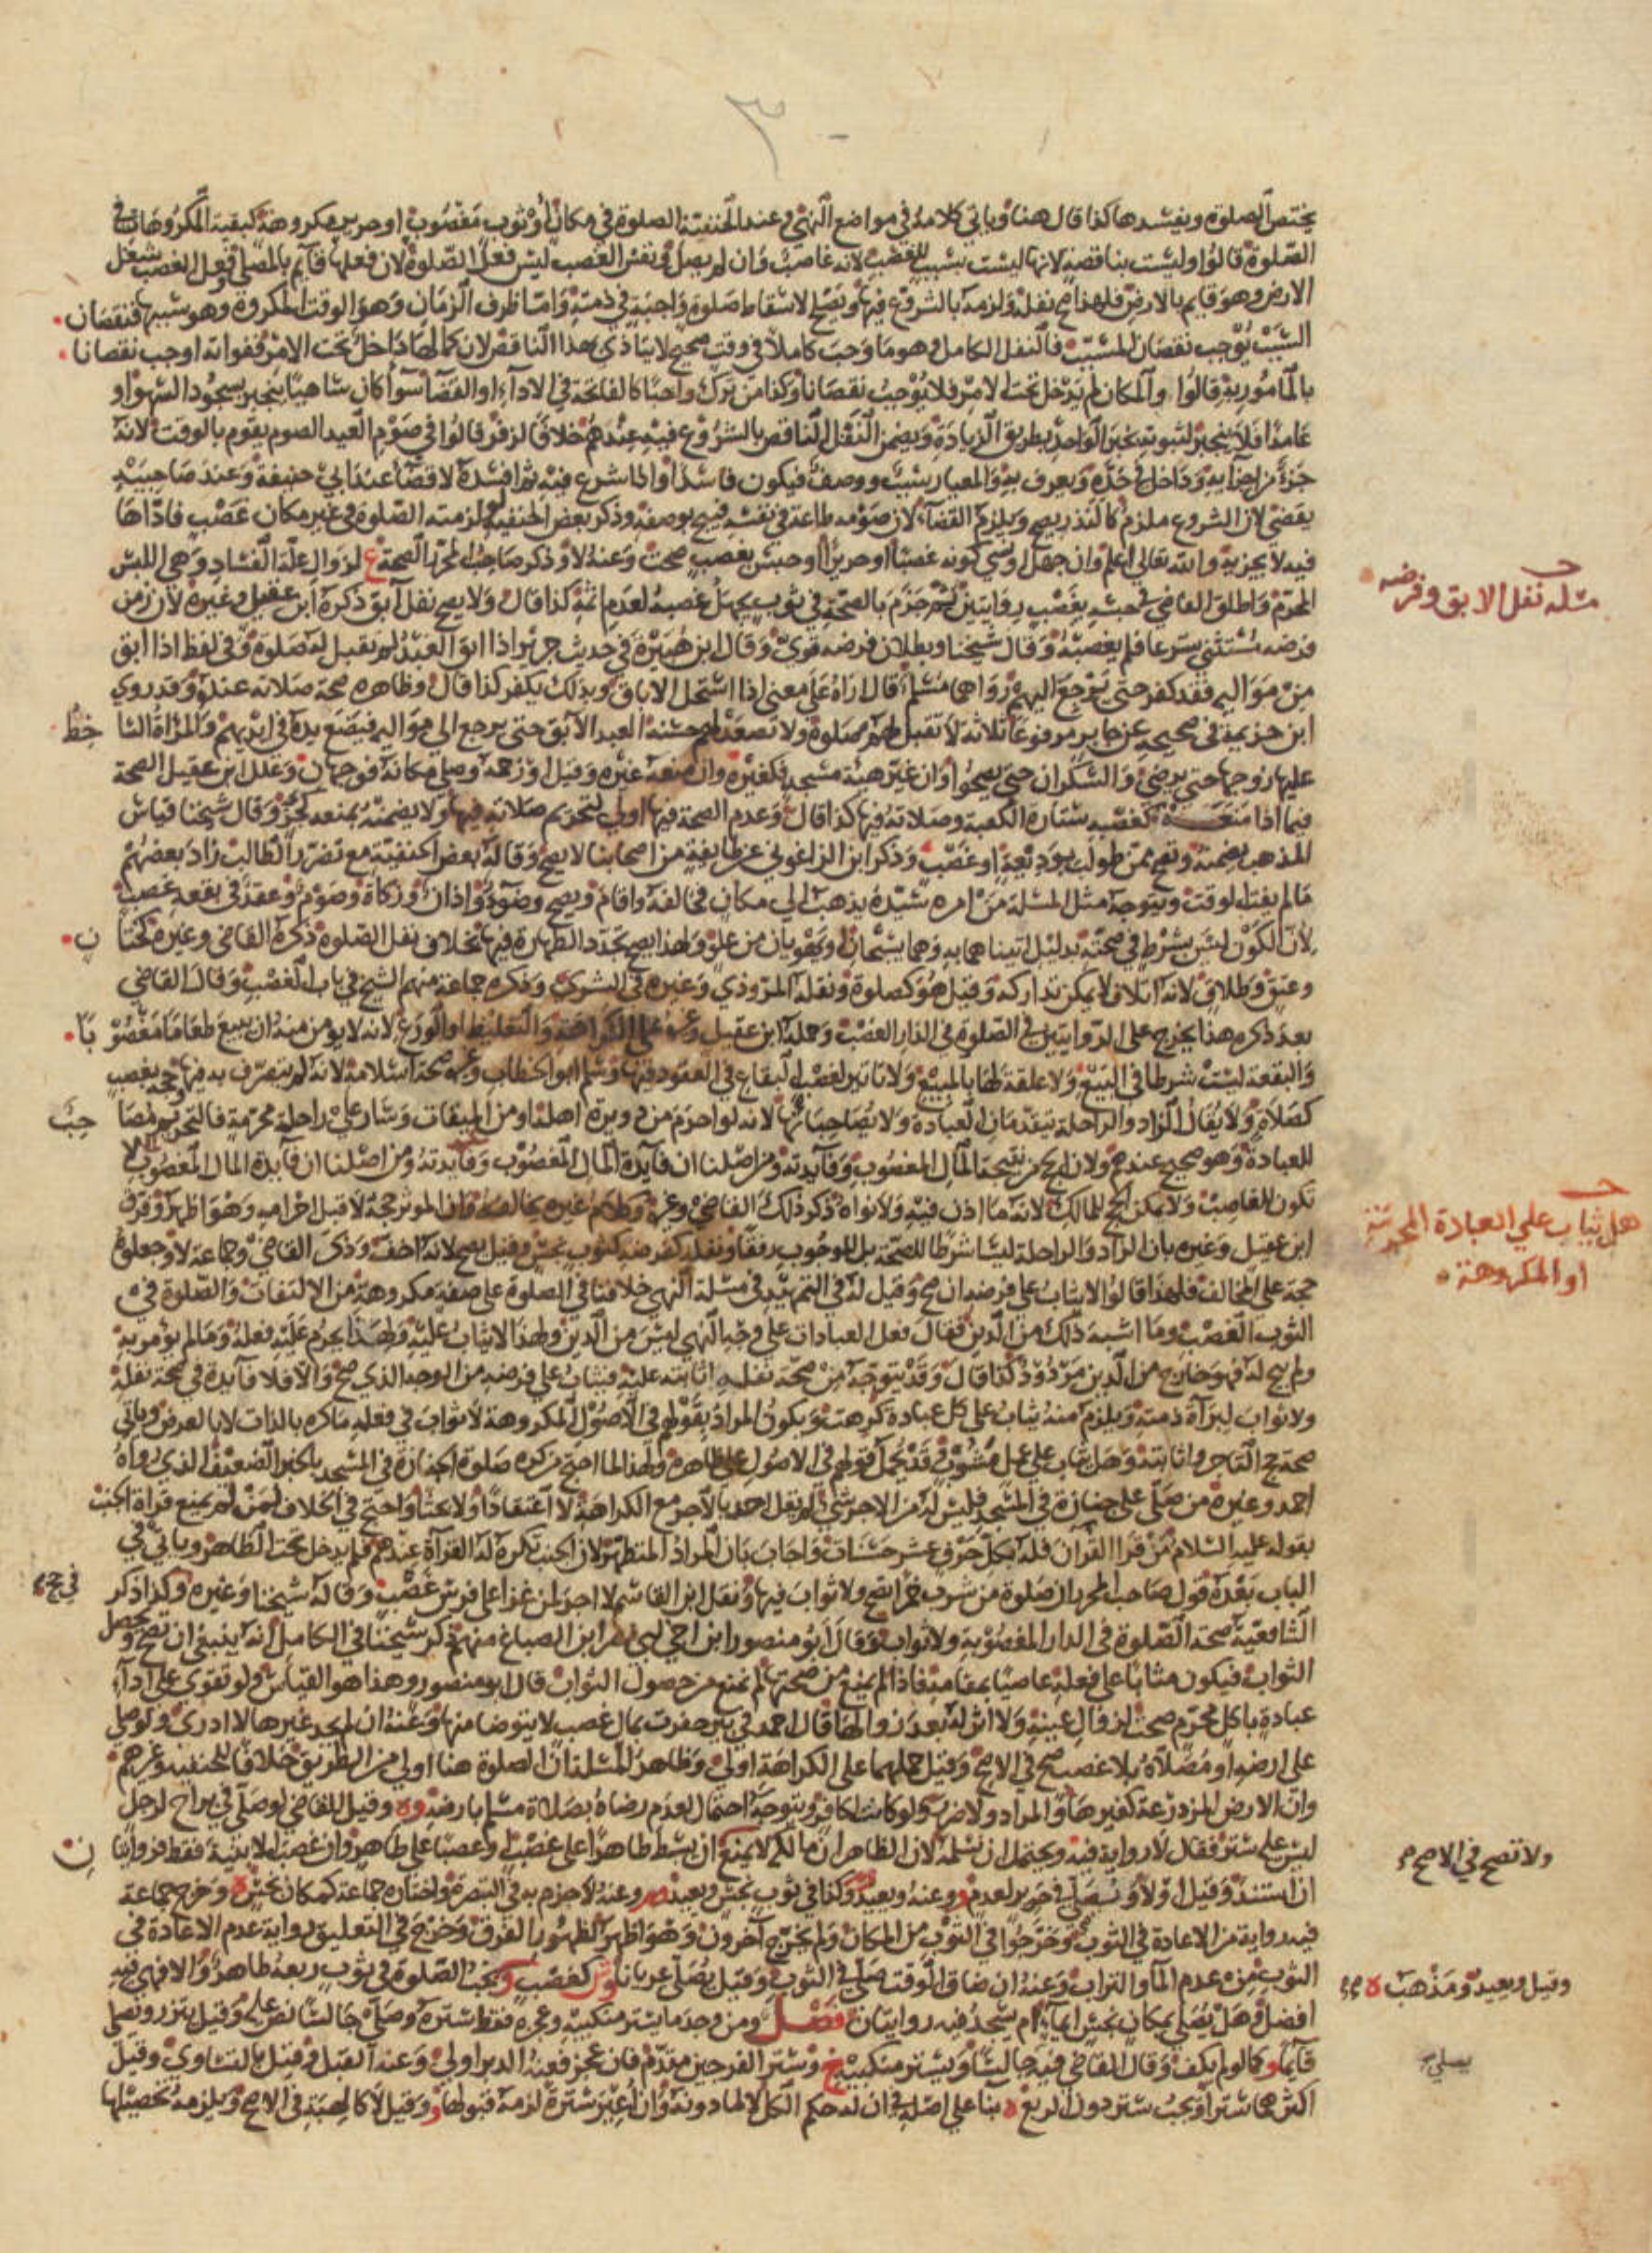 يختص الصلوة ويفسدها كذا قال هنا وياتي كلامه في مواضع النهي وعند الحنفية الصلوة في مكان او ثوب مغصوب او حرير مكروهة كبقية المكروهات في
الصلوة قالوا وليست بناقصة لانها ليست بسبب للغصب لانه غاصب وان لم يصل ونفس الغصب ليس فعل الصلوة لان فعلها قايم بالمصلي وفعل الغصب بشغل
الارض وهو قايم بالارض فلهذا صح نفله ولزمه بالشروع فيها ويصح لاسقاط صلوة واجبة في ذمته واما ظرف الزمان وهو الوقت المكروه وهو سببها فنقصان
السبب يوجب نقصان المسبب فالنفل الكامل وهو ما وجب كاملا في وقت صحيح لا يتاذى بهذا الناقص لان كمالها داخل تحت الامر ففواته اوجب نقصانا
بالمامور به قالوا والمكان لم يدخل تحت الامر فلا يوجب نقصانا وكذا من ترك واجبا كالفاتحة في الاداء او القضا سوا كان ساهيا ينجبر بسجود السهو او
عامدا فلا ينجبر لثبوته بخبر الواحد بطريق الزيادة ويضمن النفل الناقص بالشروع فيه عندهم خلافا لزفر قالوا في صوم العيد الصوم يقوم بالوقت لانه
جزء من اجزايه وداخل في حده ويعرف به والمعيار سبب ووصف فيكون فاسدا واذا شرع فيه ثم افسده لا قضا عند ابي حنيفة وعند صاحبيه
يقضي لان الشروع ملزم كالنذر يصح ويلزم القضا لان صومه طاعة في نفسه قبيح بوصفه وذكر بعض الحنفية لو لزمته الصلوة في غير مكان غصب فاداها
فيه لا يجزيه والله تعالى اعلم وان جهل او نسي كونه غصبا او حريرا او حبس بغصب صحت وعنه لا وذكر صاحب المحرر الصحة ع لزوال علة الفساد وهي اللبس
المحرم واطلق القاضي في حبسه بغصب روايتين ثم جزم بالصحة في ثوب يجهل غصبه لعدم اثمه كذا قال ولا يصح نفل آبق ذكره ابن عقيل وغيره لان زمن
فرضه مستثنى شرعا فلم يغصبه وقال شيخنا وبطلان فرضه قوي وقال ابن هبيرة في حديث جرير اذا ابق العبد لم يقبل له صلوة وفي لفظ اذا ابق
من مواليه فقد كفر حتى يرجع اليهم رواهما مسلم قال اراه على معنى اذا استحل الاباق وبذلك يكفر كذا قال وظاهره صحة صلاته عنده وقد روى
ابن خزيمة في صحيحه عن جابر مرفوعا ثلاثة لا تقبل لهم صلوة ولا تصعد لهم حسنة العبد الابق حتى يرجع الى مواليه فيضع يده في ايديهم والمراة الساخط
عليها زوجها حتى يرضى والسكران حتى يصحوا وان غير هيئة مسجد فكغيره وان منعه غيره وقيل او زحمه وصلى مكانه فوجهان وعلل ابن عقيل الصحة
فيما اذا منعه كغصبه ستارة الكعبة وصلاته فيها كذا قال وعدم الصحة فيها اولى لتحريم صلاته فيها ولا يضمنه بمنعه كحر وقال شيخنا قياس
المذهب يضمنه وتصح ممن طولب بوديعة او غصب وذكر ابن الزاغوني عن طايفة من اصحابنا لا يصح وقاله بعض الحنفية مع تضرر الطالب زاد بعضهم
مالم يفتة الوقت ويتوجه مثل المسئلة من امره سيده يذهب الى مكان فخالفه واقام ويصح وضوء واذان وزكاة وصوم وعقد في بقعة غصب
لان الكون ليس بشرط في صحته بدليل اتيانهما به وهما يسبحان او يهويان من علو ولهذا يصح تجدد الطهارة فيها بخلاف نفل الصلوة ذكره القاضي وغيره كختان
وعتق وطلاق لانه اتلاف لا يمكن تداركه وقيل هو كصلوة ونقله المروذي وغيره في الشرى وذكره جماعة منهم الشيخ في باب الغصب وقال القاضي
بعد ذكره هذا يخرج على الروايتين في الصلوة في الدار الغصب وحمله ابن عقيل وغيره على الكراهة والتغليظ او الورع لانه لا يومن منه ان يبيع طعاما مغصوبا
والبقعة ليست شرطا في البيع ولا علقة لها بالمبيع ولا تاثير لغصب البقاع في العقود فيها وسلم ابو الخطاب وغيره صحة اسلامه لانه لم يتصرف بدفنها وحجه بغصب
كصلاة ولا يقال الزاد والراحلة يتقدمان العبادة ولا يصاحبانها لانه لو احرم من دويرة اهله او من الميقات وسار على راحلة محرمة فالتحريم مصاحب
للعبادة وهو صحيح عندهم ولان الحج من نتيجة المال المغصوب وفايدته ومن اصلنا ان فايدة المال المغصوب لا
تكون للغاصب ولا يمكن الحج للمالك لانه ما اذن فيه ولا نواه ذكر ذلك القاضي وغيره وكلام غيره يخالفه وان الموثر حجه لا قبل احرامه وهو اظهر وفرق
ابن عقيل وغيره بان الزاد والراحلة ليسا شرطا للصحة بل للوجوب رفقا ونفله كفرضه كثوب نجس وقيل يصح لانه اخف وذكر القاضي وجماعة لا وجعلوه
حجة على المخالف فلهذا قالوا لا يثاب على فرضه ان صح وقيل له في التمهيد في مسئلة النهي خلافنا في الصلوة على صفة مكروهة من الالتفات والصلوة في
الثوب الغصب وما اشبه ذلك من الدين فقال فعل العبادات على وجه النهي ليس من الدين ولهذا لا يثاب عليه ولهذا يحرم عليه فعله وما لم يؤمر به
ولم يبح له فهو خارج من الدين مردود كذا قال وقد يتوجه من صحة نفله اثابته عليه فيثاب على فرضه من الوجه الذي صح والا فلا فايدة في صحة نفله
ولا ثواب لبراءة ذمته ويلزم منه يثاب على كل عبادة كرهت ويكون المراد بقولهم في الاصول المكروهة لا ثواب في فعله ما كره بالذات لا بالعرض وياتي
صحة حج التاجر واثابته وهل يثاب على عمل مشوب وقد يحمل قولهم في الاصول على ظاهره ولهذا لما احتج من كره صلوة الجنازة في المسجد بالخبر الضعيف الذي رواه
احمد وغيره من صلى على جنازة في المسجد فليس له من الاجر شي لم يقل احد بالاجر مع الكراهة لا اعتقادا ولا بحثا واحتج في الخلاف لمن لم يمنع قراة الجنب
بقوله عليه السلام من قرا القران فله بكل حرف عشر حسنات واجاب بان المراد المتطهر لان الجنب تكره له القرآة عندهم فلم يدخل تحت الظاهر وياتي في
الباب بعده قول صاحب المحرر ان صلوة من شرب خمرا تصح ولا ثواب فيها ونقل ابن القاسم لا اجر لمن غزا على فرس غصب وقاله شيخنا وغيره في حج وكذا ذكر
الشافعية صحة الصلوة في الدار المغصوبة ولا ثواب وقال ابو منصور ابن اخي ابي نصر ابن الصباغ منهم ذكر شيخنا في الكامل انه ينبغي ان تصح ويحصل
الثواب فيكون مثابا على فعله عاصيا بمقامه فاذا لم يمنع من صحتها لم يمنع من حصول الثواب قال ابو منصور وهذا هو القياس ولو تقوى على اداء
عبادة باكل محرم صحت لزوال عينه ولا اثر له بعد زوالها قال احمد في بير حفرت بمال غصب لا يتوضا منها وعنه ان لم يجد غيرها لا ادري ولو صلى
على ارضه او مصلاه بلا غصب صح في الاصح وقيل حملهما على الكراهة اولى وظاهر المسئلة ان الصلوة هنا اولى من الطريق خلافا للحنفية وغيرهم
وان الارض المزدرعة كغيرها والمراد ولا ضرر ولو كانت لكافر ويتوجه احتمال لعدم رضاه بصلاة مسلم بارضه وه وقيل للقاضي لو صلى في براح لرجل
ليس عليه ستر فقال لا رواية فيه ويحتمل ان نسلمه لان الظاهر ان مالكه لا يمنع ان بسط طاهرا على غصب او غصبا على طاهر وان غصب الابنية فقط فروايتان
ان استند وقيل او لا ويصلي في حرير لعدم و وعنه ويعيد وكذا في ثوب نجس ويعيد وعنه لا جزم به في التبصرة واختاره جماعة كمكان نجس ه وخرج جماعة
فيه رواية من الاعادة في الثوب وخرجوا في الثوب من المكان ولم يخرج آخرون وهو اظهر لظهور الفرق وخرج في التعليق رواية عدم الاعادة في
الثوب من عدم الماء والتراب وعنه ان ضاق الوقت صلى في الثوب وقيل يصلي عريانا وش كغصب ويجب الصلوة في ثوب ربعه طاهر والا فهي فيه
افضل وهل يصلي بمكان نجس ايماء ام يسجد فيه روايتان فصل ومن وجد ما يستر منكبيه وعجزه فقط ستره وصلى جالسا نص عليه وقيل يتزر ويصلي
قايما وكما لو لم يكف وقال القاضي فيه جالسا ويستر منكبيه وستر الفرجين مقدم فان عجز فعنه الدبر اولى وعنه القبل وقيل بالتساوي وقيل
اكثرهما سترا ويجب ستر دون الربع ه بنا على اصله في ان له حكم الكل لا لما دونه وان اعير سترة لزمه قبولها و وقيل لا كالهبة في الاصح ويلزمه تحصيلها
مسئلة نفل الابق وفرضه
هل يثاب على العبادة المحرمة
او المكروهة
ولا تصح في الاصح
وقيل ويعيد ومذهب ه
يصلي